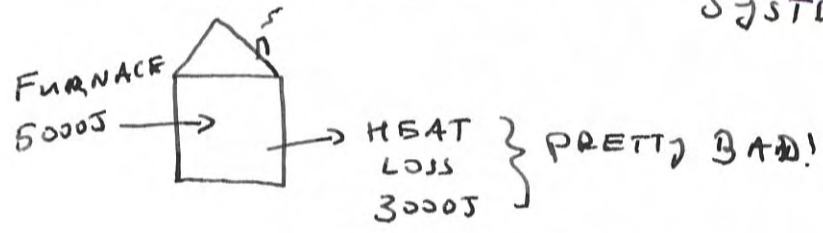 SYSTE
FURNACE
5000J
HEAT
LOSS
3000J
PRETTY BAD!